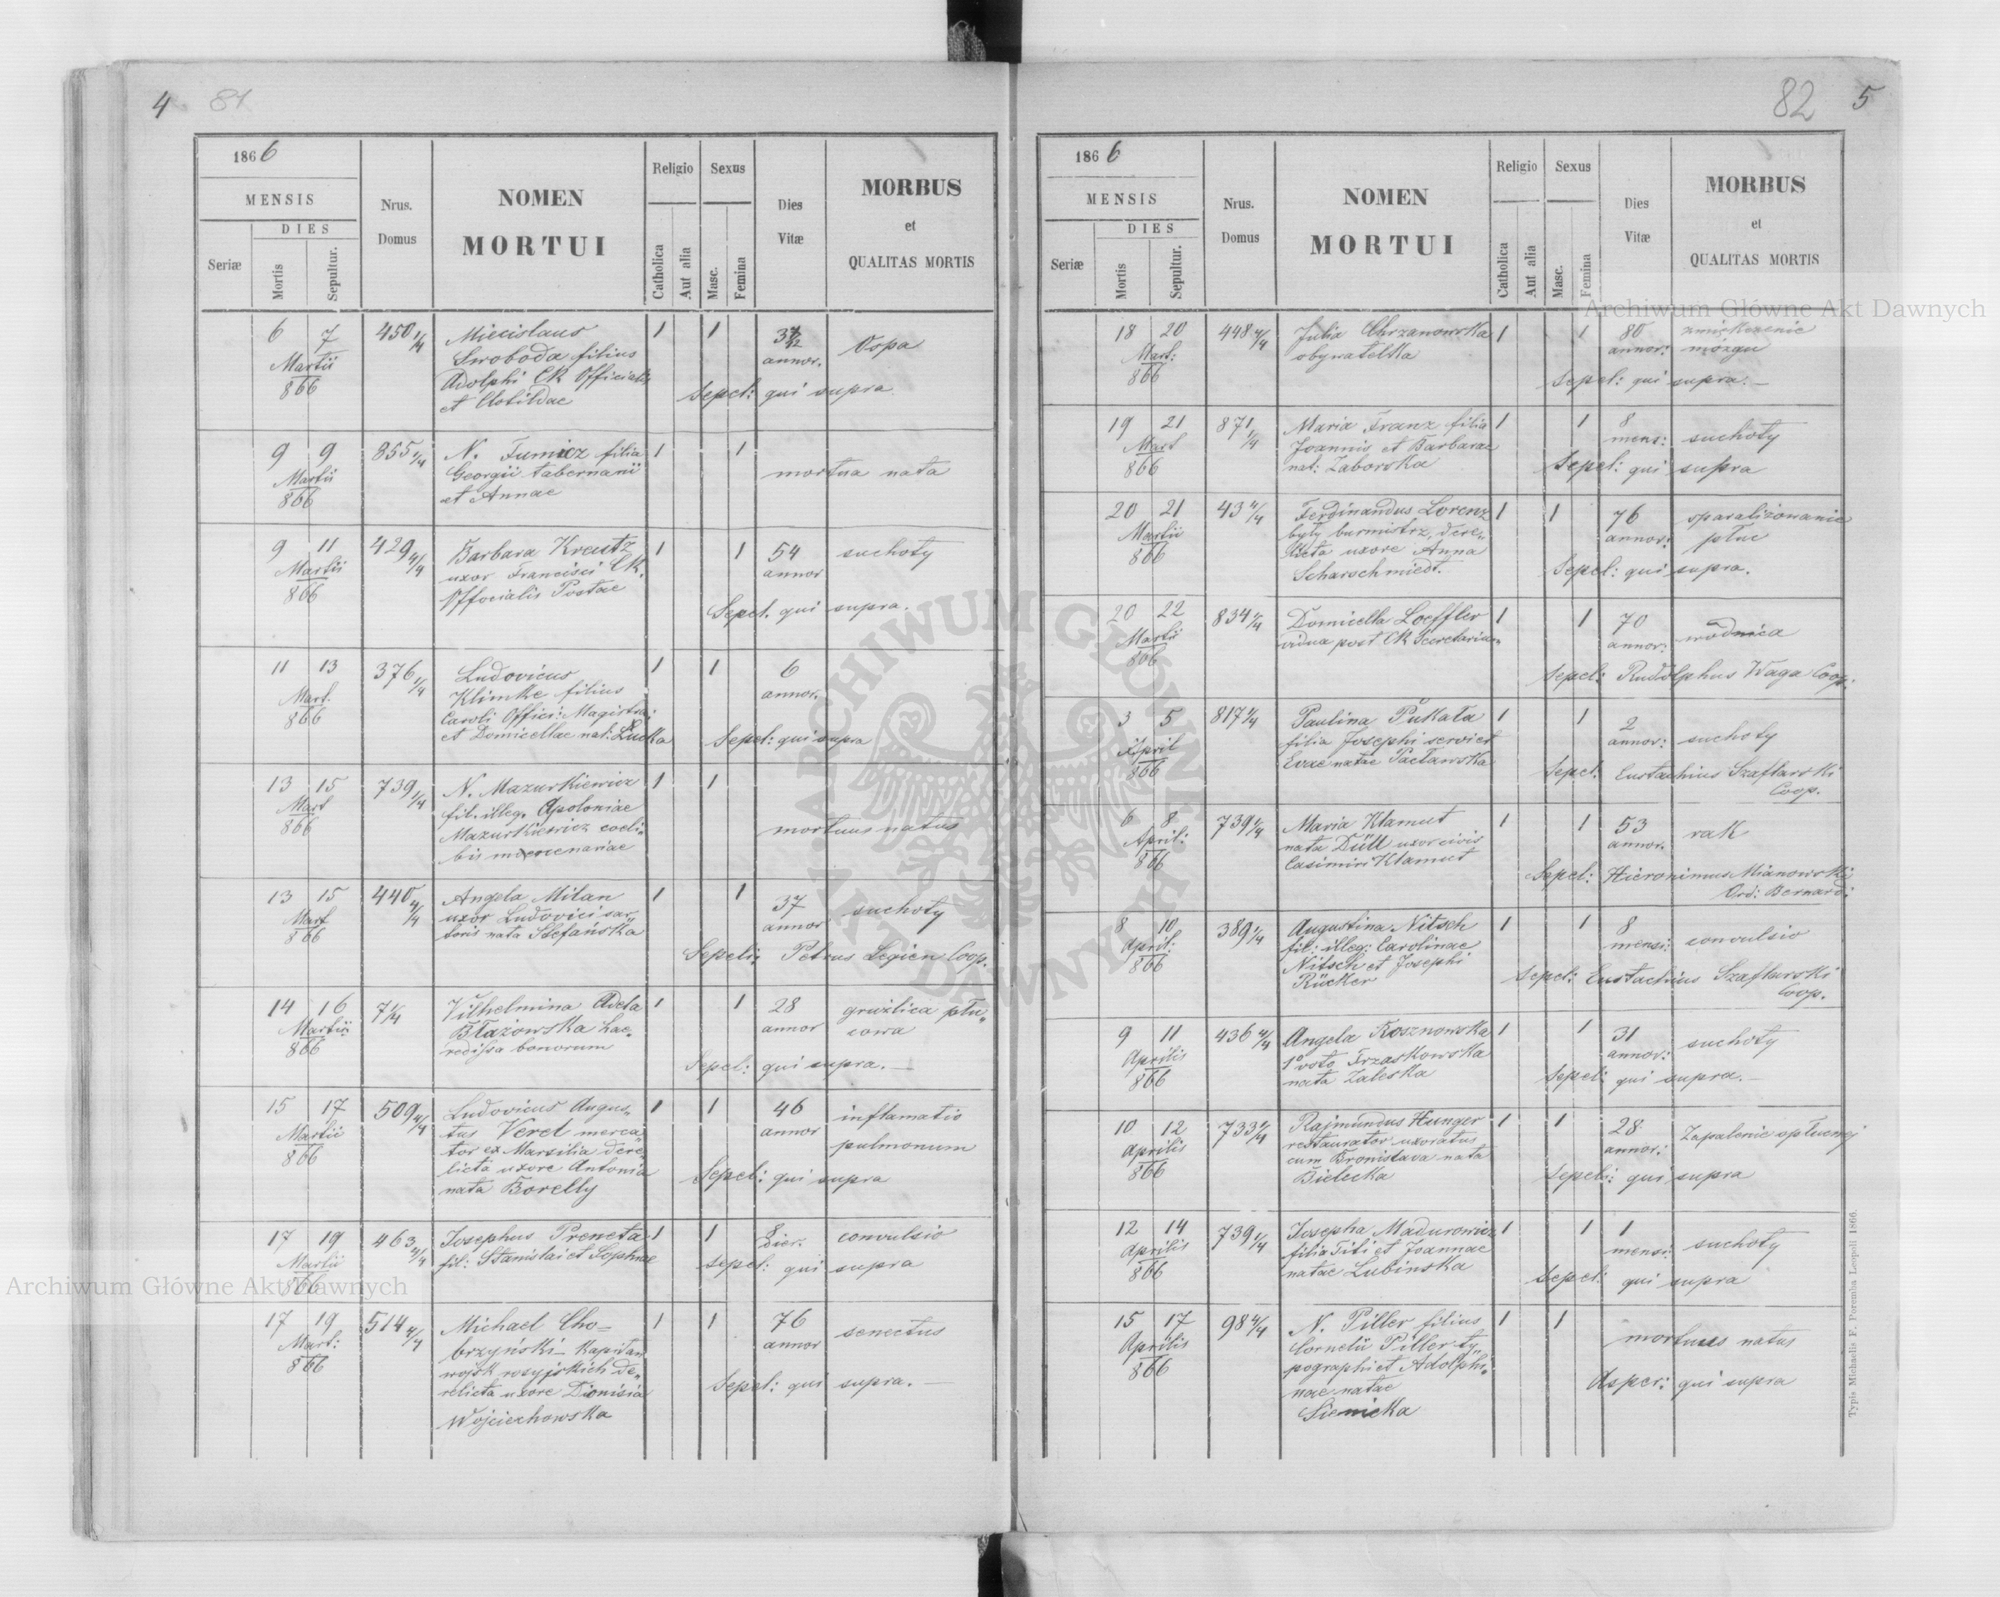 4 81
1866
MENSIS
DIES
Seriæ
Mortis
Sepultur.
Nrus.
Domus
NOMEN
MORTUI
Religio
Catholica
Aut alia
Sexus
Masc.
Femina
Dies
Vitæ
MORBUS
et
QUALITAS MORTIS
6 7 450 1/4 Miecislaus 1 1
Martii Swoboda filius annor. Ospa
866 Adolphi CK Officialis
et Clotildae Sepel: qui supra.
9 9 855 1/4 N. Fumicz filia 1 1
Martii Georgii tabernarii mortua nata
866 et Annae
9 11 429 4/4 Barbara Kreutz 1 1 54 suchoty
Martii uxor Francisci CK. annor
866 Offocialis Postae Sepel. qui supra.
11 13 376 1/4 Ludovicus 1 1 6
Mart. Klimke filius annor.
866 Caroli Offici: Magistra:
et Domicellae nat: Lucka Sepel: qui supra
13 15 739 1/4 N. Mazurkiewicz 1 1
Mart fil. illeg. Apoloniae
866 Mazurkiewicz coeli- mortuus natus
bis mercenariae
13 15 440 4/4 Angela Milan 1 1 37 suchoty
Mart uxor Ludovici sar- annor
866 toris nata Stefańska Sepeli: Petrus Legien Coop.
14 16 7 1/4 Vilhelmina Adela 1 1 28 gruźlica płu-
Martii Błażowska hae- annor cowa
866 redissa bonorum Sepel: qui supra. —
15 17 509 4/4 Ludovicus Augus- 1 1 46 inflamatio
Martii tus Veret merca- annor pulmonum
866 tor ex Marsilia dere-
licta uxore Antonia Sepel: qui supra
nata Borelly
17 19 463 4/4 Josephus Preneta 1 1 8 convulsio
Martii fil: Stanislai et Sophiae dier.
866 Sepel: qui supra
17 19 514 4/4 Michael Cho- 1 1 76 senectus
Mart: brzyński kapitan annor
866 wojsk rosyjskich de-
relicta uxore Dionisia Sepel: qui supra. —
Wojciechowska
82 5
1866
MENSIS
DIES
Seriæ
Mortis
Sepultur.
Nrus.
Domus
NOMEN
MORTUI
Religio
Catholica
Aut alia
Sexus
Masc.
Femina
Dies
Vitæ
MORBUS
et
QUALITAS MORTIS
18 20 448 4/4 Julia Chrzanowska 1 1 80 zmiękczenie
Mart: obywatelka annor: mózgu
866 Sepel: qui supra. —
19 21 871 1/4 Maria Franz filia 1 1 8 suchoty
Mart Joannis et Barbarae mens:
866 nat: Zaborska Sepel: qui supra
20 21 43 4/4 Ferdinandus Lorenz 1 1 76 sparaliżowanie
Martii były burmistrz, dere- annor: płuc
866 licta uxore Anna
Scharschmiedt. Sepel: qui supra.
20 22 834 1/4 Domicella Loeffler 1 1 70 wodnica
Martii vidua post CK Secretarium annor:
866 Sepel: Rudolphus Waga Coop:
3 5 817 1/4 Paulina Pukała 1 1 2 suchoty
April filia Josephi serviet annor:
866 Evae natae Pacławska Sepel: Eustachius Szaflarski
Coop.
6 8 739 1/4 Maria Klamut 1 1 53 rak
April: nata Düll uxor civis annor.
866 Casimiri Klamut Sepel: Hieronimus Mianowski
Ord: Bernard:
8 10 389 1/4 Augustina Nitsch 1 1 8 convulsio
April: fil: illeg: Carolinae mensi:
866 Nitsch et Josephi Sepel: Eustachius Szaflarski
Rücker Coop.
9 11 436 4/4 Angela Kosznowska 1 1 31 suchoty
Aprilis 1º voto Trzaskowska annor:
866 nata Zaleska Sepel: qui supra. —
10 12 733 1/4 Rajmundus Hunger 1 1 28 Zapalenie opłucnej
Aprilis restaurator uxoratus annor:
866 cum Bronislava nata
Bielecka Sepeli: qui supra
12 14 739 1/4 Josepha Madurowicz 1 1 1 suchoty
Aprilis filia Titi et Joannae mensi:
866 natae Lubinska Sepel: qui supra
15 17 98 4/4 N. Piller filius 1 1
Aprilis Cornelii Piller ty- mortuus natus
866 pographi et Adolphi-
nae natae Asper: qui supra
Sienicka
Typis Michaelis F. Poremba Leopoli 1866.
Archiwum Główne Akt Dawnych
Archiwum Główne Akt Dawnych
ARCHIWUM GŁÓWNE AKT DAWNYCH